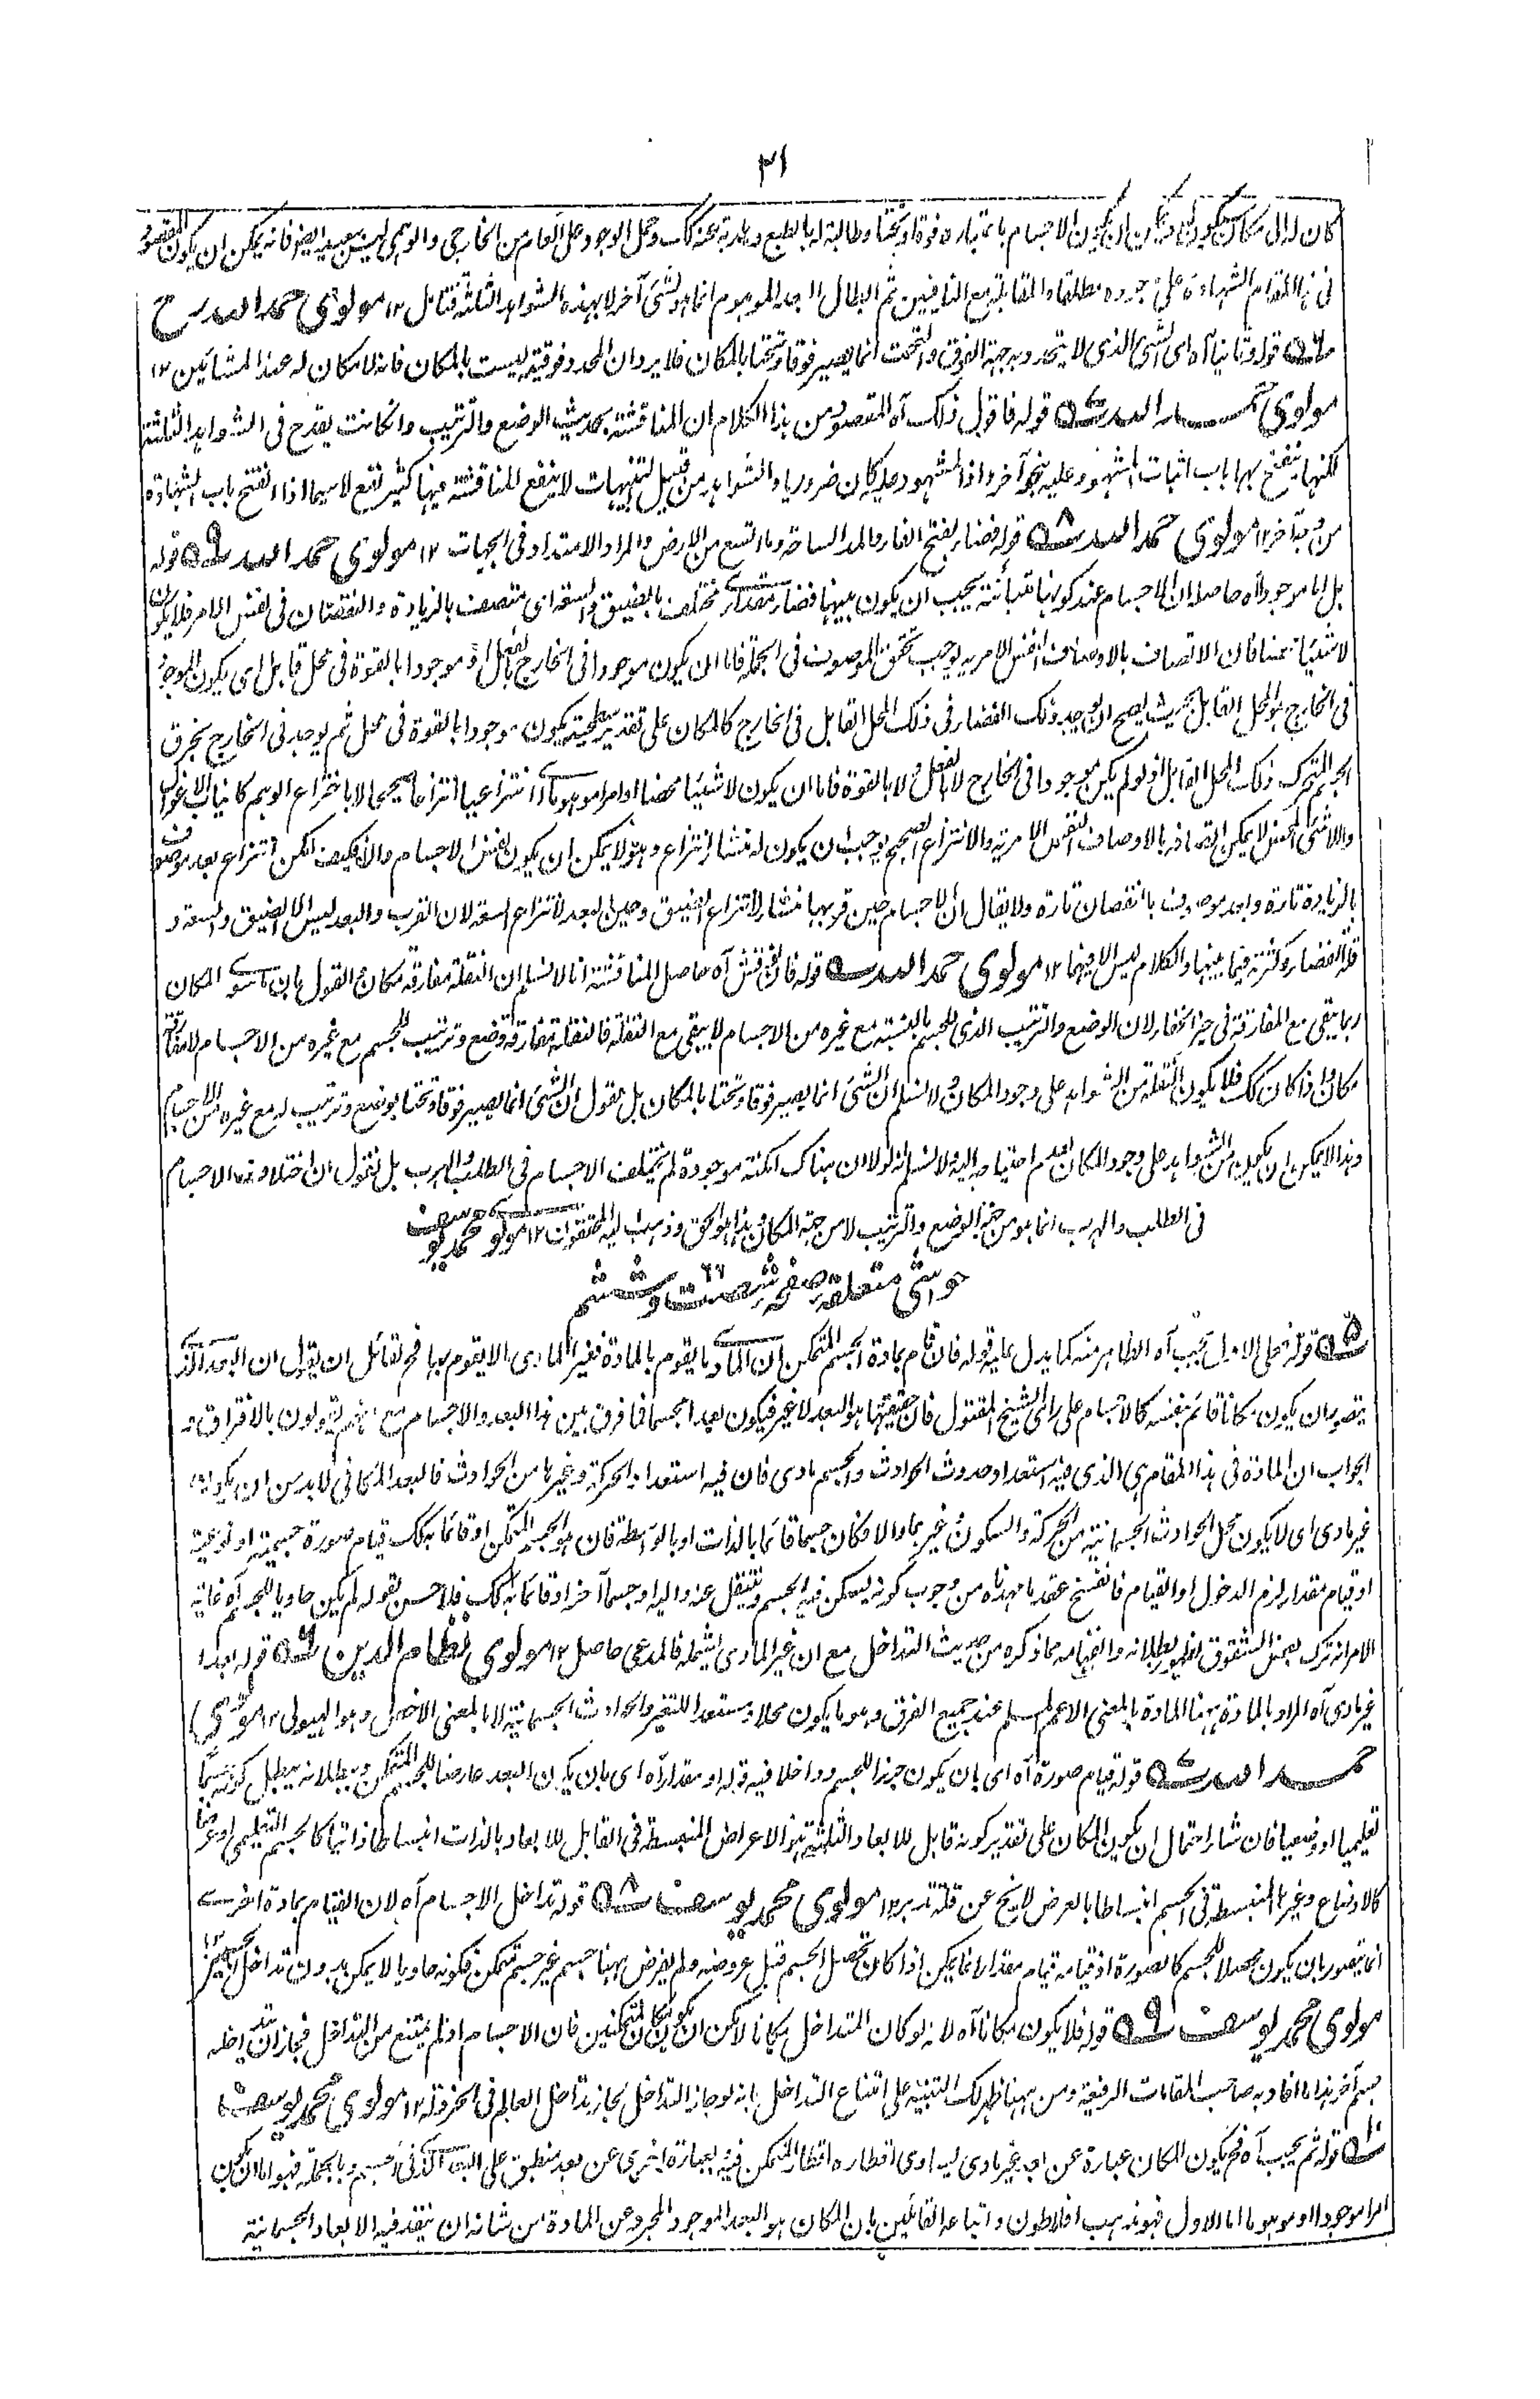 ٣١
كان له الى مكان يكون الاجسام باعتباره فوقا وتحتا وطالبة له بالطبع وهاربة عنه كك وحمل الوجود على العام من الخارجى والوهمى ليس ببعيد ايضا فانه يمكن ان يكون المقصود
فى هذا المقام الشهادة على وجوده مطلقا والمقابلة مع النافيين ثم ابطال البعد الموهوم انما هو لشئ آخر لا بهذه الشواهد الثلثة فتامل ١٢ مولوى حمد الله رح
قوله وثانيا آه اى الشئ الذى لا يتحدد به جهة الفوق والتحت انما يصير فوقا وتحتا بالمكان فلا يرد ان المحدد فوقيته ليست بالمكان فانه لا مكان له عند المشائين ١٢
مولوى حمد الله قوله فاقول ذلك آه المقصود من هذا الكلام ان المناقشة بحديث الوضع والترتيب وان كانت يقدح فى الشواهد الثلثة
لكنها ينفتح بها باب اثبات المشهود عليه بنحو آخر واذا المشهود عليه كان ضروريا والشواهد من قبيل التنبيهات لا ينفع للمناقشة فيها كثير نفع لا سيما اذا انفتح باب الشهادة
من وجه آخر ١٢ مولوى حمد الله قوله فضاء بفتح الفاء والمد الساحة وما اتسع من الارض والمراد الامتداد فى الجهات ١٢ مولوى حمد الله قوله
بل اما موجودا آه حاصله ان الاجسام عند كونها متبائنة يجب ان يكون بينها فضاء مقدارى مختلف بالضيق والسعة اى متصف بالزيادة والنقصان فى نفس الامر فلا يكون
لا شيئا محضا فان الاتصاف بالاوصاف النفس الامرية يوجب تحقق الموصوف فى الجملة فاما ان يكون موجودا فى الخارج بالفعل او موجودا بالقوة فى محل قابل اى يكون الموجود
فى الخارج هو المحل القابل بحيث يصح ان يوجد ذلك الفضاء فى ذلك المحل القابل فى الخارج كالمكان على تقدير سطحيته يكون موجودا بالقوة فى محل ثم يوجد فى الخارج بخرق
الجسم المتحرك ذلك المحل القابل اذ لو لم يكن موجودا فى الخارج لا بالفعل ولا بالقوة فاما ان يكون لا شيئا محضا او امرا موهوما انتزاعيا انتزاعا صحيحا لا باختراع الوهم كانياب الاغوال
واللاشئ المحض لا يمكن اتصافه بالاوصاف النفس الامرية والانتزاع الصحيح يوجب ان يكون له منشاء انتزاع وهو لا يمكن ان يكون نفس الاجسام والا فكيف امكن انتزاع بعد موصوف
بالزيادة تارة وبعد موصوف بالنقصان تارة ولا يقال ان الاجسام حين قربها منشاء لانتزاع الضيق وحين البعد لانتزاع السعة لان القرب والبعد ليس الا الضيق والسعة و
قلة الفضاء وكثرته فيما بينها والكلام ليس الا فيها ١٢ مولوى حمد الله قوله فان نوقش آه حاصل المناقشة انا لا نسلم ان النقلة مفارقة مكان والقول بان تساوى المكان
ربما يبقى مع المفارقة فى حيز الخفاء لان الوضع والترتيب الذى للجسم بالنسبة مع غيره من الاجسام لا يبقى مع النقلة فالنقلة مفارقة وضع وترتيب للجسم مع غيره من الاجسام لا مفارقة
مكان واذا كان كك فلا يكون النقلة من الشواهد على وجود المكان ولا نسلم ان الشئ انما يصير فوقا وتحتا بالمكان بل نقول ان الشئ انما يصير فوقا وتحتا بوضع وترتيب له مع غيره من الاجسام
وهذا لا يمكن ان يكون من الشواهد على وجود المكان لعدم احتياجه اليه ولا نسلم انه لولا ان هناك امكنة موجودة لم تختلف الاجسام فى الطلب والهرب بل نقول ان اختلاف هذه الاجسام
فى الطلب والهرب انما هو من جهة الوضع والترتيب لا من جهة المكان وهذا هو الحق وذهب اليه المحققون ١٢ مولوى محمد يوسف
حواشى متعلقه صفحه شصت وششم
قوله فعلى الاول يجب آه الظاهر منه كما يدل عليه قوله فان قام بمادة الجسم المتمكن ان المادى ما يقوم بالمادة فغير المادى ما لا يقوم بها فح لقائل ان يقول ان البعد الذى
يتصور ان يكون مكانا قائم بنفسه كالاجسام على راى الشيخ المقتول فان حقيقتها هو البعد لا غير فيكون بعدا جسما فما فرق بين هذا البعد والاجسام مع انهم يقولون بالافتراق و
الجواب ان المادة فى هذا المقام هى الذى فيه استعداد حدوث الحوادث والجسم مادى فان فيه استعداد الحركة وغيرها من الحوادث فالبعد المكانى لا بد من ان يكون
غير مادى اى لا يكون محل الحوادث الجسمانية من الحركة والسكون وغيرهما والا فكان جسما قائما بالذات او بالواسطة فان هو الجسم المتمكن او قائما به كك قيام صورة جسمية او نوعية
او قيام مقدار لزم الدخول او القيام فانفسخ عقد ما مهدناه من وجوب كونه ليسكن فيه الجسم وينتقل عنه واليه او جسما آخر او قائما به كك فلا حسن لقوله لم يكن حاويا للجسم آه غاية
الامر انه ترك بعض الشقوق لظهور بطلانه وانفهامه مما ذكره من حديث التداخل مع ان غير المادى اشمله فالمدعى حاصل ١٢ مولوى نظام الدين قوله بعدا
غير مادى آه المراد بالمادة ههنا المادة بالمعنى الاعم المسلم عند جميع الفرق وهو ما يكون محلا ومستعدا للتغير والحوادث الجسمانية لا بالمعنى الاخص وهو الهيولى ١٢ مولوى
حمد الله قوله قيام صورة آه اى بان يكون جزء للجسم وداخلا فيه قوله او مقدار آه اى بان يكون البعد عارضا للجسم المتمكن وببطلانه يبطل كونه جسما
تعليميا او وضعيا فان شاء احتمال ان يكون المكان على تقدير كونه قابلا للابعاد الثلثة من الاعراض المنبسطة فى القابل للابعاد بالذات انبساطا ذاتيا كالجسم التعليمى او عرضا
كالاوضاع وغيرها المنبسطة فى الجسم انبساطا بالعرض لا يخ عن قلة تدبر ١٢ مولوى محمد يوسف قوله تداخل الاجسام آه لان القيام بمادة اخرى
انما يتصور بان يكون محصلا للجسم كالصورة اذ قيامه قيام مقدار انما يمكن اذا كان تحصل الجسم قبل عروضه ولم يفرض ههنا جسم غير جسم متمكن فكونه حاويا لا يمكن بدون تداخل الجسمين ١٢
مولوى محمد يوسف قوله فلا يكون مكانا آه لانه لو كان المتداخل مكانا لامكن ان يكون مكان المتمكنين فان الاجسام اذ لم يمتنع من التداخل فجاز ان يتداخله
جسم آخر هذا ما افاد به صاحب المقامات الرفيعة ومن ههنا ظهر لك التنبيه على امتناع التداخل بانه لو جاز التداخل لجاز تداخل العالم فى الخردلة ١٢ مولوى محمد يوسف
قوله ثم يجب آه فح يكون المكان عبارة عن بعد غير مادى يساوى اقطاره اقطار المتمكن فيه وبعبارة اخرى عن بعد منطبق على البعد الذى فى الجسم وبالجملة فهو اما ان يكون
امرا موجودا او موهوما اما الاول فهو مذهب افلاطون واتباعه القائلين بان المكان هو البعد الموجود المجرد عن المادة من شانه ان ينفذ فيه الابعاد الجسمانية